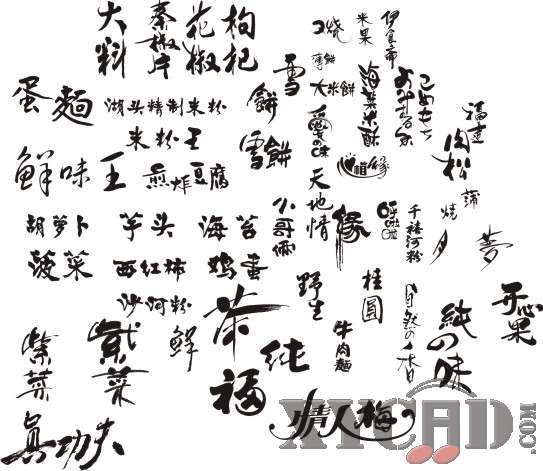 大料
秦椒片
花椒
枸杞
口烧
米果
伊食布
雪
薄餅
大米餅
海菜米酥
こめもち
福建
肉松
蛋麵
湖头精制米粉
餅
米粉王
雪餅
愛の味
心相緣
鮮味王
煎炸豆腐
天地情
胡萝卜
芋头
海苔
小哥俩
緣
千禧河粉
燒
夢
菠菜
西红柿
鸡蛋
沙河粉
野生
桂圆
自然の香
开心果
紫菜
紫菜
鮮
茶
純
牛肉麵
純の味
福
情人梅
真功夫
XYCAD.COM